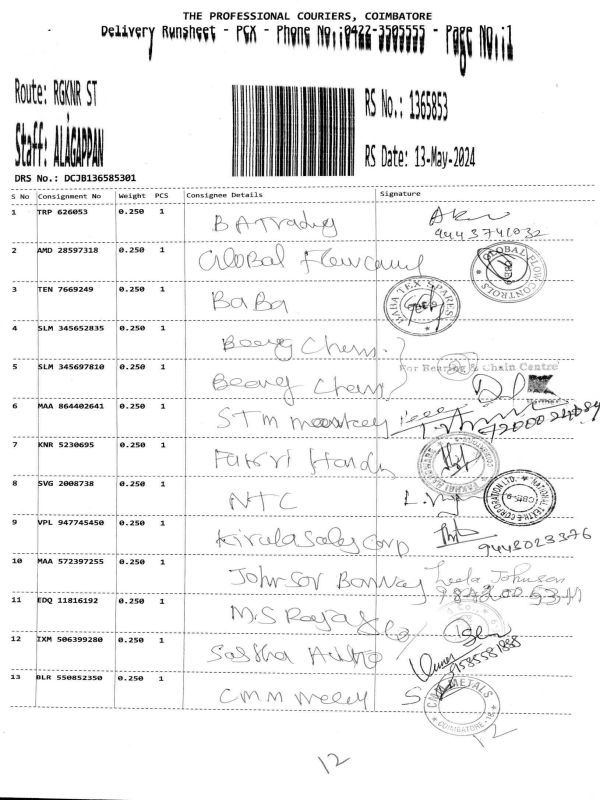 THE PROFESSIONAL COURIERS, COIMBATORE
Delivery Runsheet - PCX - Phone No.:0422-3505555 - Page No.:1
Route: RGKNR ST
RS No.: 1365853
Staff: ALAGAPPAN
RS Date: 13-May-2024
DRS No.: DCJB136585301
S No Consignment No Weight PCS Consignee Details Signature
1 TRP 626053 0.250 1 BA Trading
9443741032
2 AMD 28597318 0.250 1 Global Flow
GLOBAL FLOW CONTROLS
3 TEN 7669249 0.250 1 BaBa
BABA TEX SPARES
4 SLM 345652835 0.250 1
5 SLM 345697810 0.250 1
For Bearing & Chain Centre
6 MAA 864402641 0.250 1 STM
7 KNR 5230695 0.250 1
8 SVG 2008738 0.250 1 NTC
NATIONAL TEXTILE CORPORATION LTD.
9 VPL 947745450 0.250 1 Kirala Sales Corp
9443023376
10 MAA 572397255 0.250 1 Johnson
Leela Johnson
11 EDQ 11816192 0.250 1 M.S Rajas & Co
12 IXM 506399280 0.250 1 Sastha Auto
9585581888
13 BLR 550852350 0.250 1 CMM
CMM METALS
COIMBATORE-18
12
12